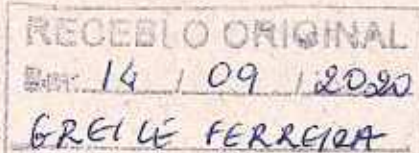 RECEBI O ORIGINAL
Em: 14 / 09 / 2020
GREICE FERREIRA